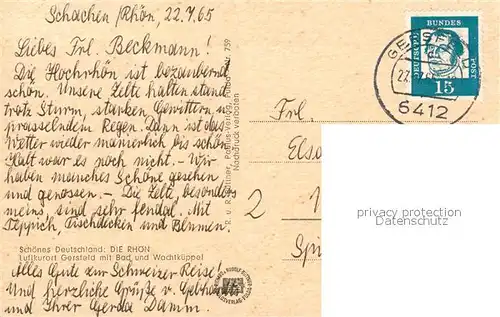 Schachen/Rhön, 22.7.65
Liebes Frl. Beckmann!
Die Hochrhön ist bezaubernd
schön. Unsene Zelte halten stand
trotz Sturm, starken Gewittern u.
prasselndem Regen. Dann ist das
Wetter wieder manierlich bis schön
Kalt war es noch nicht. - Wir
haben manches Schöne gesehen
und genossen. - Die Zelte, besonders
meins, sind sehr feudal. Mit
Teppich, Tischdecken und Blumen.
Schönes Deutschland: DIE RHÖN
Luftkurort Gersfeld mit Bad und Wachtküppel
Alles Gute zur Schweizer Reise!
Und herzliche Grüße v. Gebhardt
und Ihrer Gerda Damm.
Nachdruck verboten
DEUTSCHE
BUNDES
POST
15
6412
Frl.
Elso
2
Spi
privacy protection
Datenschutz